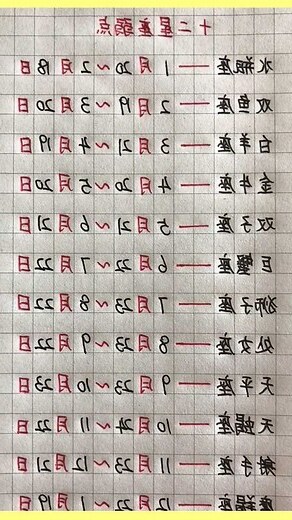 十二星座弱点
水瓶座——1月20~2月18日
双鱼座——2月19~3月20日
白羊座——3月21~4月19日
金牛座——4月20~5月20日
双子座——5月21~6月21日
巨蟹座——6月22~7月22日
狮子座——7月23~8月22日
处女座——8月23~9月22日
天平座——9月23~10月23日
天蝎座——10月24~11月22日
射手座——11月23~12月21日
摩羯座——12月22~1月19日